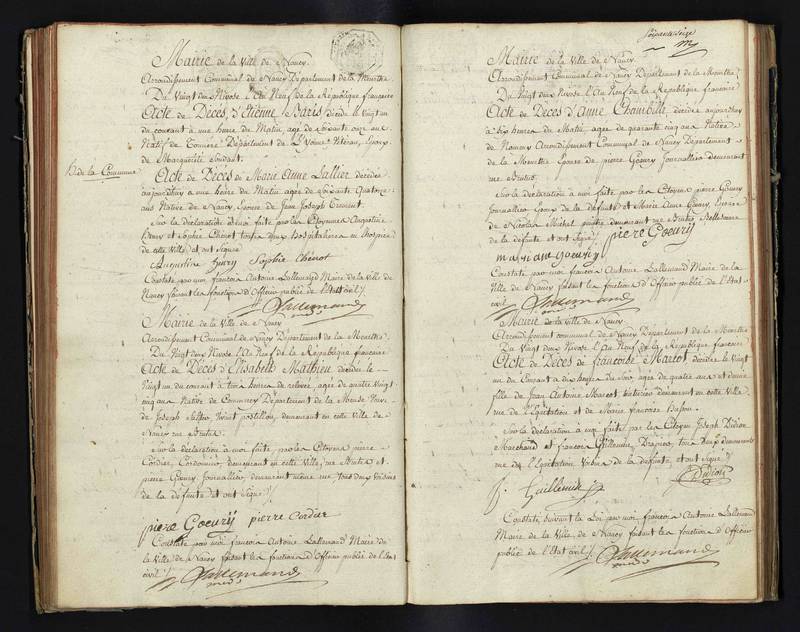 Mairie de la Ville de Nancy.
Arrondissement Communal de Nancy Département de la Meurthe
Du Vingt deux Nivose l'An Neuf de la République francaise
Acte de Décès d'Etienne Baris décédé le vingt un
du courant à une heure du Matin, agé de soixante onze ans
Natif de Département de L'Yonne Vétéran, Epoux
de Marguerite
de la Commune
Acte de Décès de Marie Anne Lallier décédée
aujourdhuy à une heure du Matin agée de soixante Quatorze
ans Native de Nancy, Epouse de Jean Joseph
Sur la déclaration à moi faite par les Citoyennes Augustine
Henry et Sophie Chénot toutes deux hospitalières en
de cette Ville et ont signé
Augustine henry Sophie Chénot
Constaté par moi francois Antoine Lallemand Maire de la Ville de
Nancy faisant les fonctions d'Officier public de l'état civil
Lallemand
Mairie de la Ville de Nancy
Arrondissement Communal de Nancy Département de la Meurthe
Du Vingt deux Nivose l'An Neuf de la République francaise
Acte de Décès d'Elisabeth Mathieu décédée le
Vingt un du courant à trois heures de relevée, agée de quatre vingt
cinq ans Native de Commercy Département de la Meuse
de Joseph postillon, demeurant en cette Ville de
Nancy rue
Sur la déclaration à moi faite, par les Citoyens pierre
Cordier, Cordonnier, demeurant en cette Ville, rue et
pierre Gœury Journallier, demeurant même rue tous deux voisins
de la défunte et ont signé
piere Goeurÿ pierre cordier
Constaté par moi francois Antoine Lallemand Maire de
la Ville de Nancy faisant les fonctions d'Officier public de l'état
civil
Lallemand
soixante seize
Mairie de la Ville de Nancy.
Arrondissement Communal de Nancy Département de la Meurthe
Du Vingt deux Nivose l'An Neuf de la République francaise
Acte de Décès d'Anne Chambille, décédée aujourdhuy
à six heures du Matin, agée de quarante cinq ans Native
de Nancy Arrondissement Communal de Nancy Département
de la Meurthe Epouse de pierre Goeury Journallier demeurant
rue
Sur la déclaration à moi faite par les Citoyens pierre Goeury
Journallier Epoux de la défunte et Marie Anne Goeury, Epouse
de Nicolas Michel demeurant rue Bellesoeur
de la défunte et ont signé
piere Goeurÿ
mariane goeury
Constaté par moi francois Antoine Lallemand Maire de la
Ville de Nancy faisant les fonctions d'Officier public de l'état
civil
Lallemand
Mairie de la Ville de Nancy.
Arrondissement communal de Nancy Département de la Meurthe
Du Vingt deux Nivose l'An Neuf de la République francaise
Acte de Décès de francoise Marcot décédée le Vingt
un du Courant à dix heures du soir agée de quatre ans et demie
fille de Jean Antoine Marcot demeurant en cette Ville
rue de l'Equitation et de Marie francoise
Sur la déclaration à moi faite par les Citoyens Joseph Didion
Marchand et francois Guillemin, Drapier, tous deux demeurants
rue de l'Equitation Voisins de la défunte, et ont signé
Didion
f. Guillemin
Constaté, suivant la Loi par moi francois Antoine Lallemand
Maire de la Ville de Nancy faisant les fonctions d'Officier
public de l'Etat civil
Lallemand